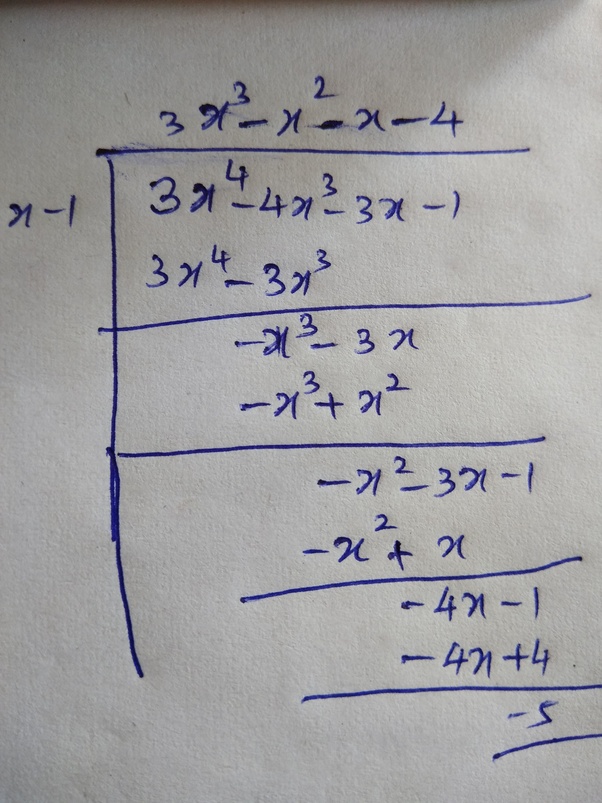 3x³ - x² - x - 4
x-1 3x⁴ - 4x³ - 3x - 1
3x⁴ - 3x³
-x³ - 3x
-x³ + x²
-x² - 3x - 1
-x² + x
-4x - 1
-4x + 4
-5